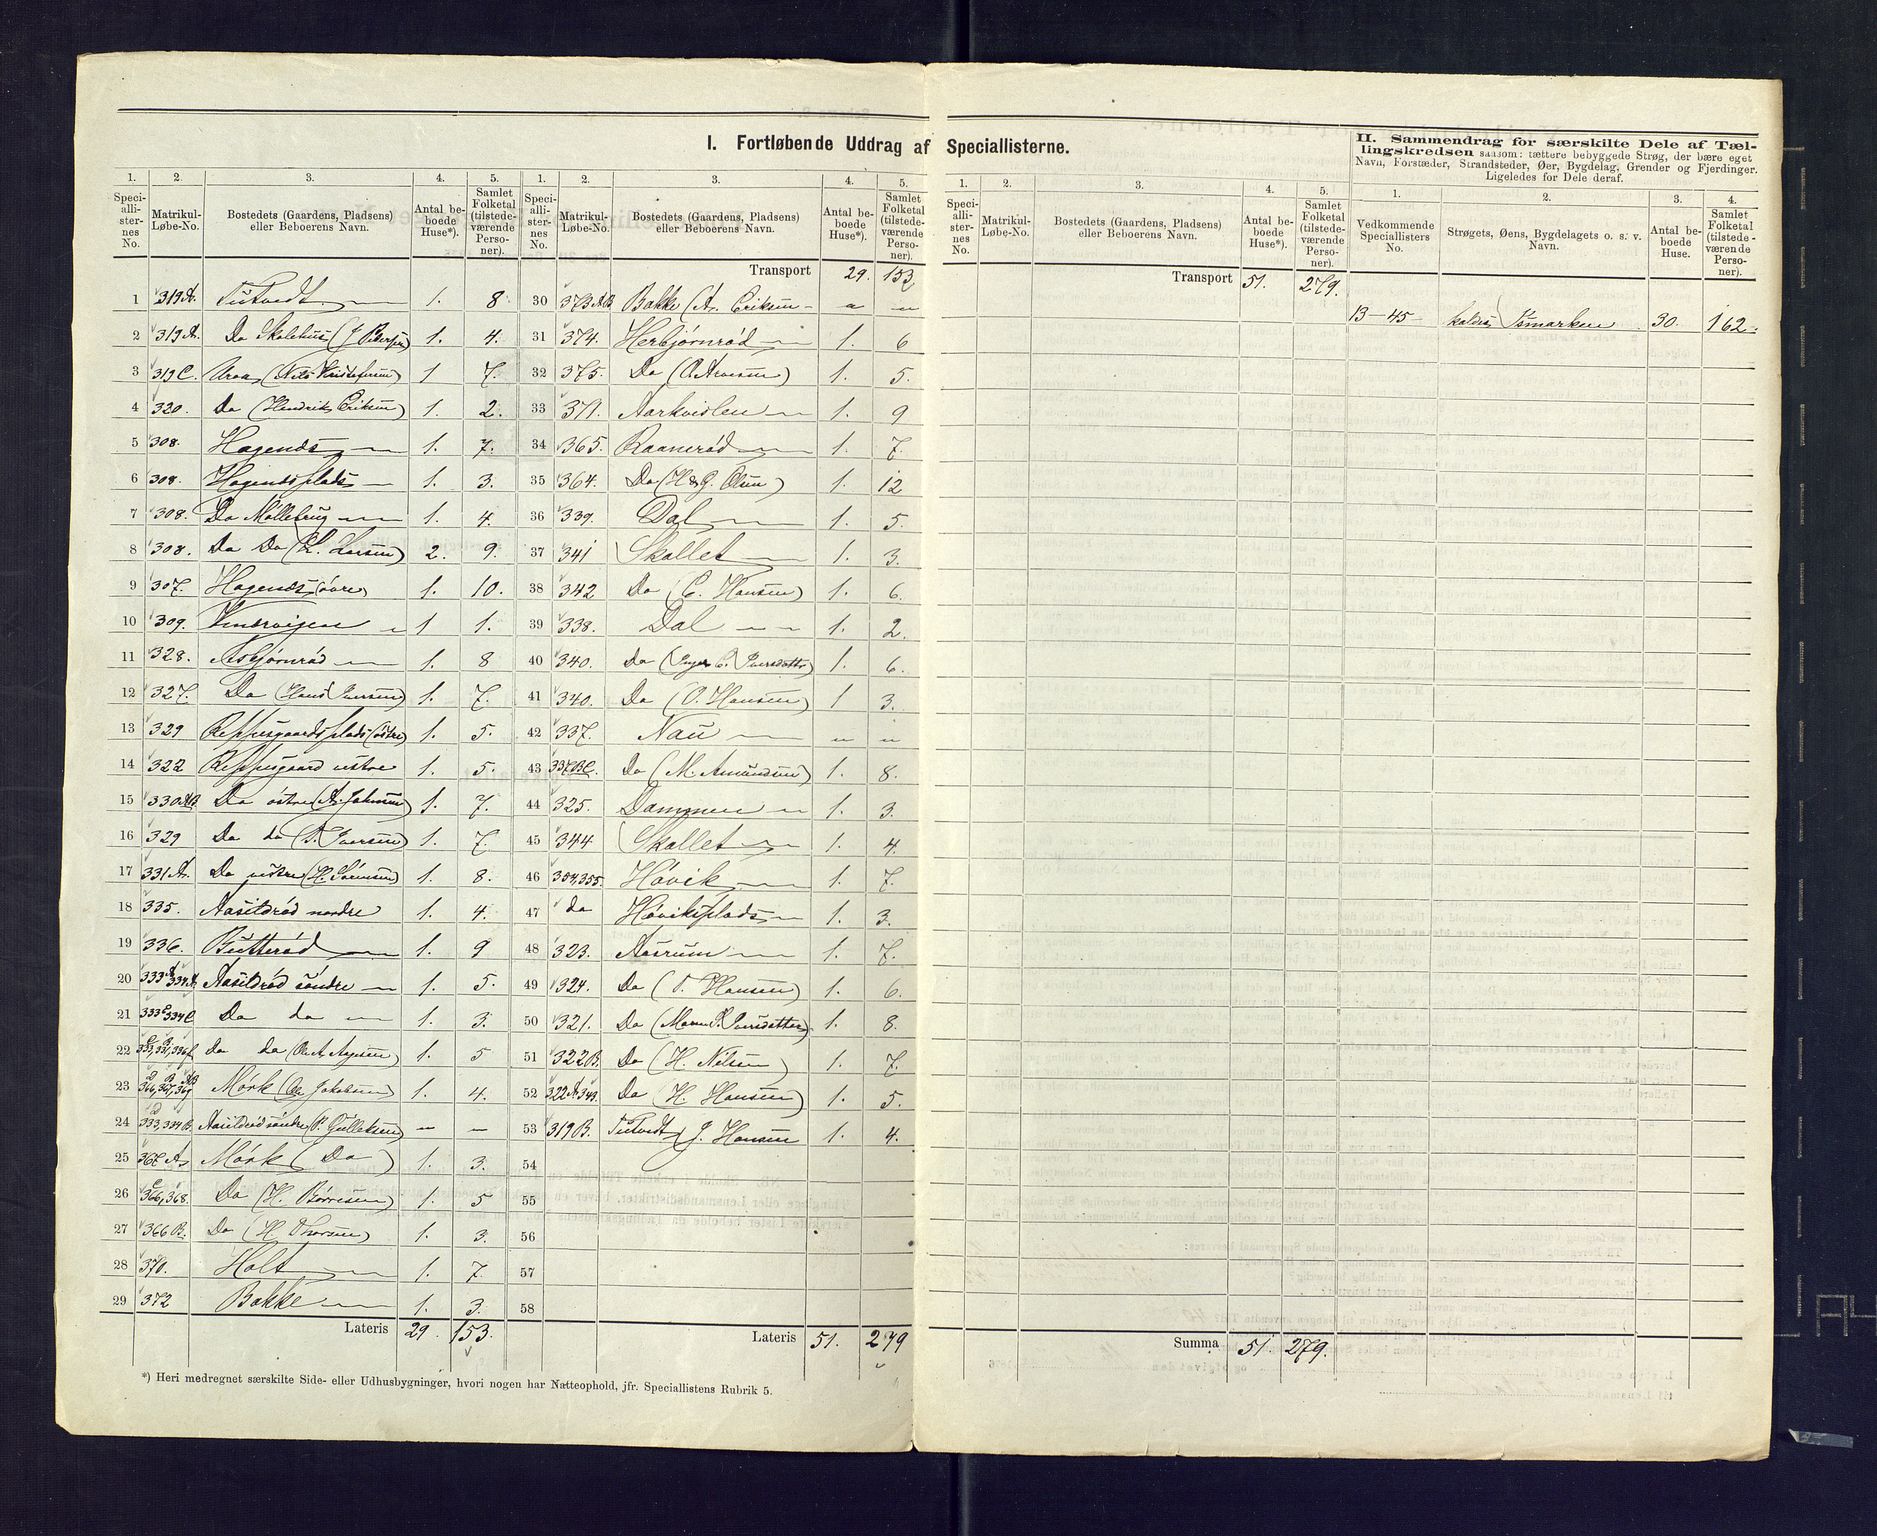 I. Fortløbende Uddrag af Speciallisterne.
II. Sammendrag for særskilte Dele af Tæl-
lingskredsen saasom: tættere bebyggede Strøg, der bære eget
Navn, Forstæder, Strandsteder, Øer, Bygdelag, Grender og Fjerdinger.
Ligeledes for Dele deraf.
1. 2. 3. 4. 5. 1. 2. 3. 4. 5. 1. 2. 3. 4. 5. 1. 2. 3. 4.
Speciallisternes No. Matrikul-Løbe-No. Bostedets (Gaardens, Pladsens) eller Beboerens Navn. Antal beboede Huse*). Samlet Folketal (tilstedeværende Personer).
Speciallisternes No. Matrikul-Løbe-No. Bostedets (Gaardens, Pladsens) eller Beboerens Navn. Antal beboede Huse*). Samlet Folketal (tilstedeværende Personer).
Speciallisternes No. Matrikul-Løbe-No. Bostedets (Gaardens, Pladsens) eller Beboerens Navn. Antal beboede Huse*). Samlet Folketal (tilstedeværende Personer).
Vedkommende Speciallisters No. Strøgets, Øens, Bygdelagets o. s. v. Navn. Antal beboede Huse. Samlet Folketal (tilstedeværende Personer).
1 319A. Tutvedt 1. 8
2 319A. Do Skolehus 1. 4.
3 319C. 1 7.
4 320. Do (Hendrik Eriksen) 1. 2.
5 308. Hagenæs 1. 7.
6 308. Hagenæsplads 1. 3.
7 308. Do Møllebrug 1. 4.
8 308. Do Do (L. Larsen) 2. 9.
9 307. Hagenæs, øvre 1. 10.
10 309. 1 1.
11 328. Asbjørnrød 1. 8
12 327. Do (Hans Iversen) 1. 7.
13 329 Reppesgaardsplads (østre) 1. 5.
14 322 Reppesgaard vestre 1. 5.
15 330AB. Do østre 1. 7.
16 329 Do do (T. Iversen) 1. 7.
17 331A. Do vestre (H. Sørensen) 1. 8.
18 335. Aasildrød nordre 1. 4.
19 336. Butterød 1. 9
20 333A 334A Aasildrød søndre 1. 5.
21 333C 334C Do do 1. 3.
22 do do 1. 5
23 Mørk (Ole Jakobsen) 1. 4.
24 333, 334B. Aasildrød søndre (P. Gulleksen) — —
25 367A. Mørk (Do) 1. 3.
26 366, 368. Do (H. Børresen) 1. 5
27 366B. Do (H. Thorsen) 1. 3.
28 370. Holt 1. 7.
29 372 Bakke 1. 3.
Lateris 29. 153.
Transport 29. 153
30 373AB Bakke (A. Eriksen — „ „
31 374. Herbjørnrød 1. 6
32 375. Do 1. 5.
33 371. Aarkvislen 1. 9
34 365. Raanerød 1. 7.
35 364. Do (H & G. Olsen) 1. 12
36 339. Dal 1. 5.
37 341 Skollet 1. 3.
38 342 Do (C. Hansen) 1. 6.
39 338. Dal 1. 2.
40 340. Do (Inger C. Iversdatter) 1. 6.
41 340. Do (O. Hansen) 1 3.
42 337. Nau „ „
43 337BC. Do (M. Amundsen) 1. 8.
44 325. Dammen 1. 3.
45 344 Skollet 1. 4.
46 354,355. Høvik 1. 7.
47 do Høviksplads 1. 3.
48 323. Aasrum 1. 7.
49 324. Do (T. Hansen) 1. 6.
50 321. Do (Maren Iversdatter) 1. 8.
51 322B. Do (H. Nilsen) 1. 7.
52 322A. 343. Do (H. Hansen) 1. 5.
53 319B. Tutvedt J. Hansen 1. 4.
54
55
56
57
58
Lateris 51. 279
Transport 51. 279.
Summa 51. 279.
13—45 30. 162.
*) Heri medregnet særskilte Side- eller Udhusbygninger, hvori nogen har Natteophold, jfr. Speciallistens Rubrik 5.